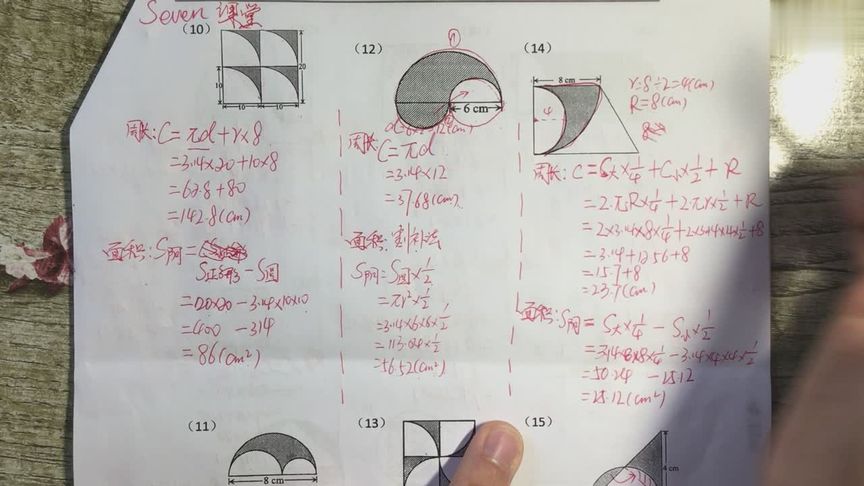 Seven 课堂
(10)
20
10
10
10
周长: C=πd+r×8
=3.14×20+10×8
=62.8+80
=142.8(cm)
面积: S阴=
S正形-S圆
=20×20-3.14×10×10
=400-314
=86(cm²)
(12)
①
6 cm
周长
C=πd
=3.14×12
=37.68(cm)
面积: 割补法
S阴=S圆×1/2
=πr²×1/2
=3.14×6×6×1/2
=113.04×1/2
=56.52(cm²)
(14)
8 cm
4
r=8÷2=4(cm)
R=8(cm)
周长: C=C大×1/4+C小×1/2+R
=2πR×1/4+2πr×1/2+R
=2×3.14×8×1/4+2×3.14×4×1/2+8
=3.14+12.56+8
=15.7+8
=23.7(cm)
面积: S阴=S大×1/4-S小×1/2
=3.14×8×8×1/4-3.14×4×4×1/2
=50.24-25.12
=25.12(cm²)
(11)
8 cm
(13)
(15)
4 cm